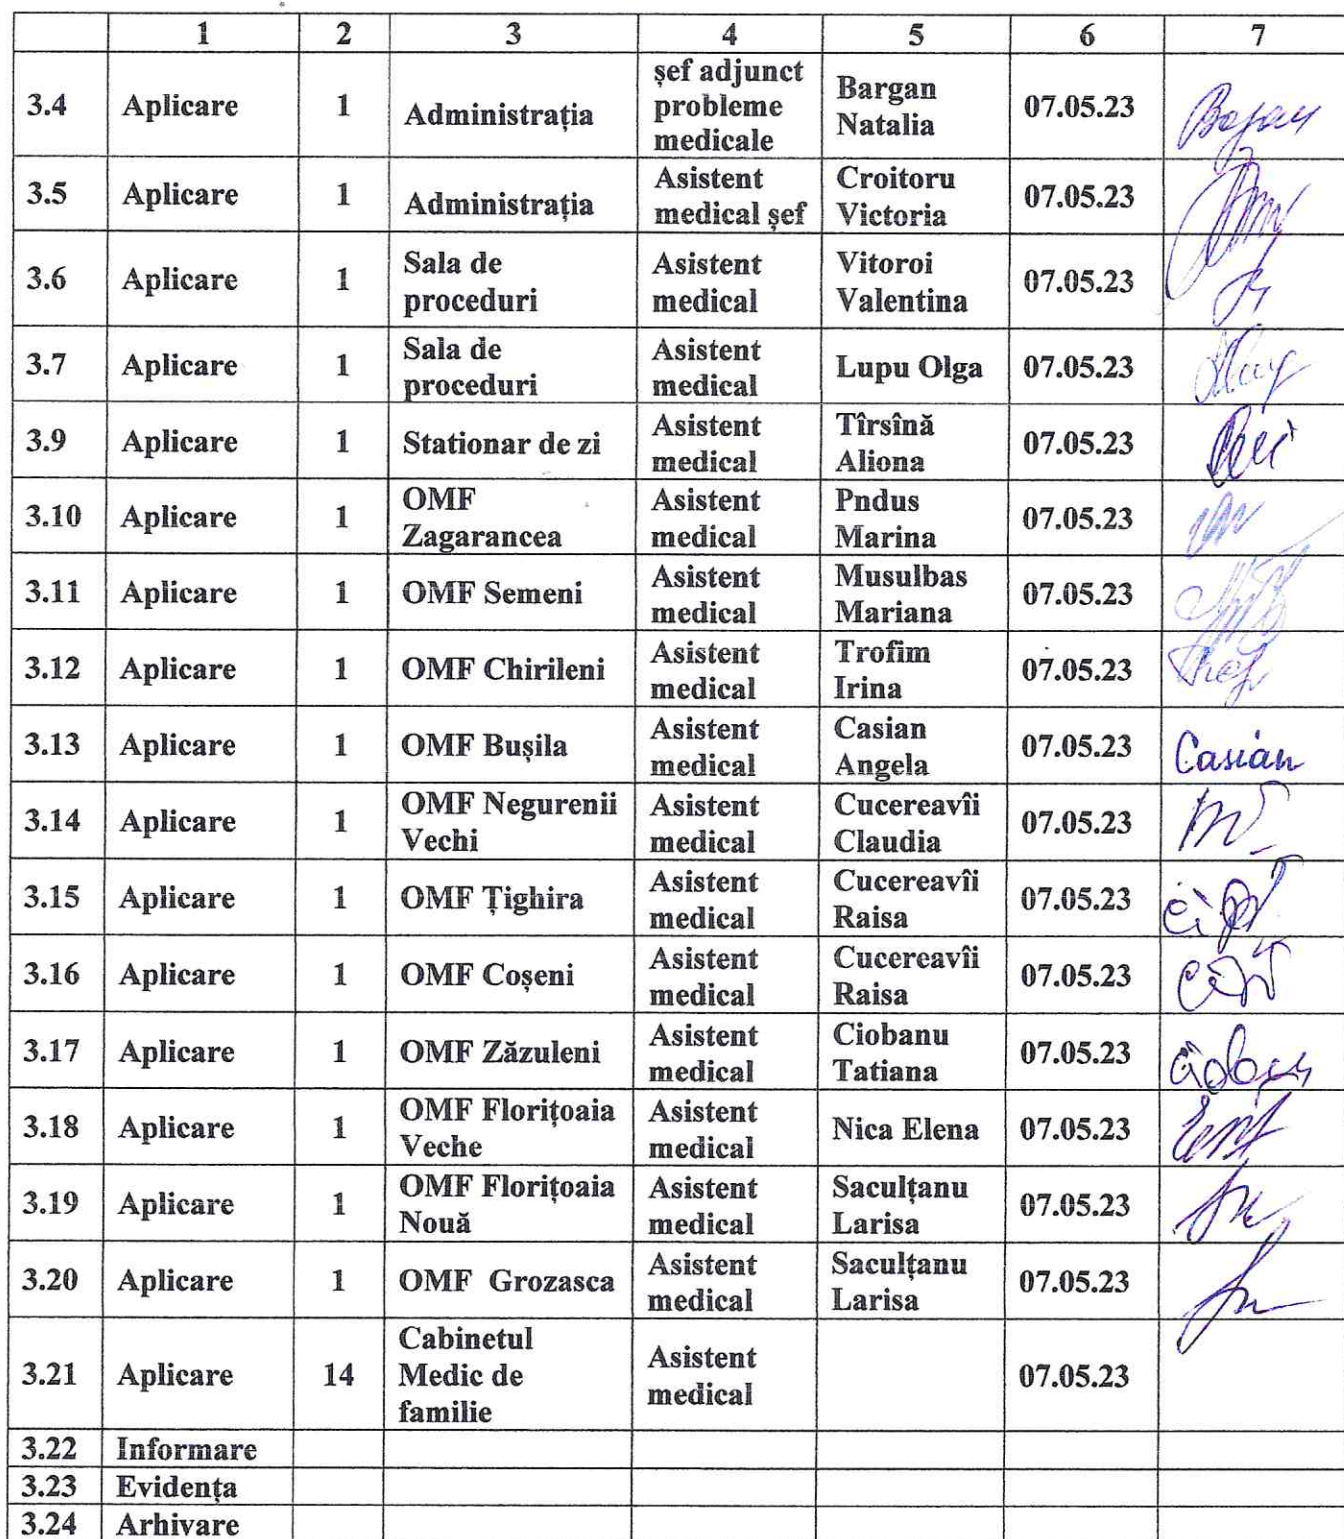 1 2 3 4 5 6 7
3.4 Aplicare 1 Administrația șef adjunct probleme medicale Bargan Natalia 07.05.23
3.5 Aplicare 1 Administrația Asistent medical șef Croitoru Victoria 07.05.23
3.6 Aplicare 1 Sala de proceduri Asistent medical Vitoroi Valentina 07.05.23
3.7 Aplicare 1 Sala de proceduri Asistent medical Lupu Olga 07.05.23
3.9 Aplicare 1 Stationar de zi Asistent medical Tîrsînă Aliona 07.05.23
3.10 Aplicare 1 OMF Zagarancea Asistent medical Pndus Marina 07.05.23
3.11 Aplicare 1 OMF Semeni Asistent medical Musulbas Mariana 07.05.23
3.12 Aplicare 1 OMF Chirileni Asistent medical Trofim Irina 07.05.23
3.13 Aplicare 1 OMF Bușila Asistent medical Casian Angela 07.05.23 Casian
3.14 Aplicare 1 OMF Negurenii Vechi Asistent medical Cucereavîi Claudia 07.05.23
3.15 Aplicare 1 OMF Țighira Asistent medical Cucereavîi Raisa 07.05.23
3.16 Aplicare 1 OMF Coșeni Asistent medical Cucereavîi Raisa 07.05.23
3.17 Aplicare 1 OMF Zăzuleni Asistent medical Ciobanu Tatiana 07.05.23
3.18 Aplicare 1 OMF Florițoaia Veche Asistent medical Nica Elena 07.05.23
3.19 Aplicare 1 OMF Florițoaia Nouă Asistent medical Saculțanu Larisa 07.05.23
3.20 Aplicare 1 OMF Grozasca Asistent medical Saculțanu Larisa 07.05.23
3.21 Aplicare 14 Cabinetul Medic de familie Asistent medical 07.05.23
3.22 Informare
3.23 Evidența
3.24 Arhivare